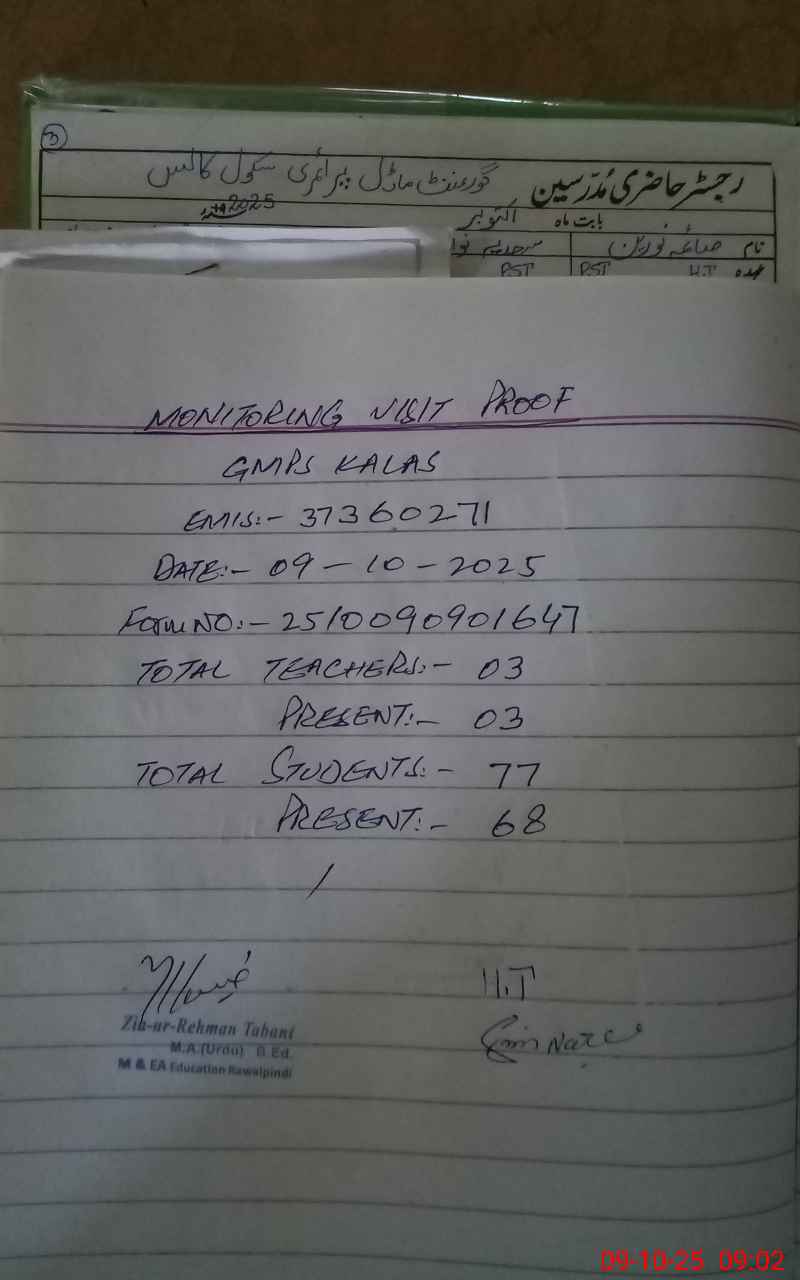 3
رجسٹر حاضری مدرسین گورنمنٹ ماڈل پرائمری سکول کالس
بابت ماہ اکتوبر 2025
نام صائمہ نورین
عہدہ H.T PST PST
MONITORING VISIT PROOF
GMPS KALAS
EMIS:- 37360271
DATE:- 09-10-2025
Form NO:- 2510090901647
TOTAL TEACHERS:- 03
PRESENT:- 03
TOTAL STUDENTS:- 77
PRESENT:- 68
H.T
Zia-ur-Rehman Tabani
M.A.(Urdu) B.Ed.
M & EA Education Rawalpindi
09-10-25 09:02